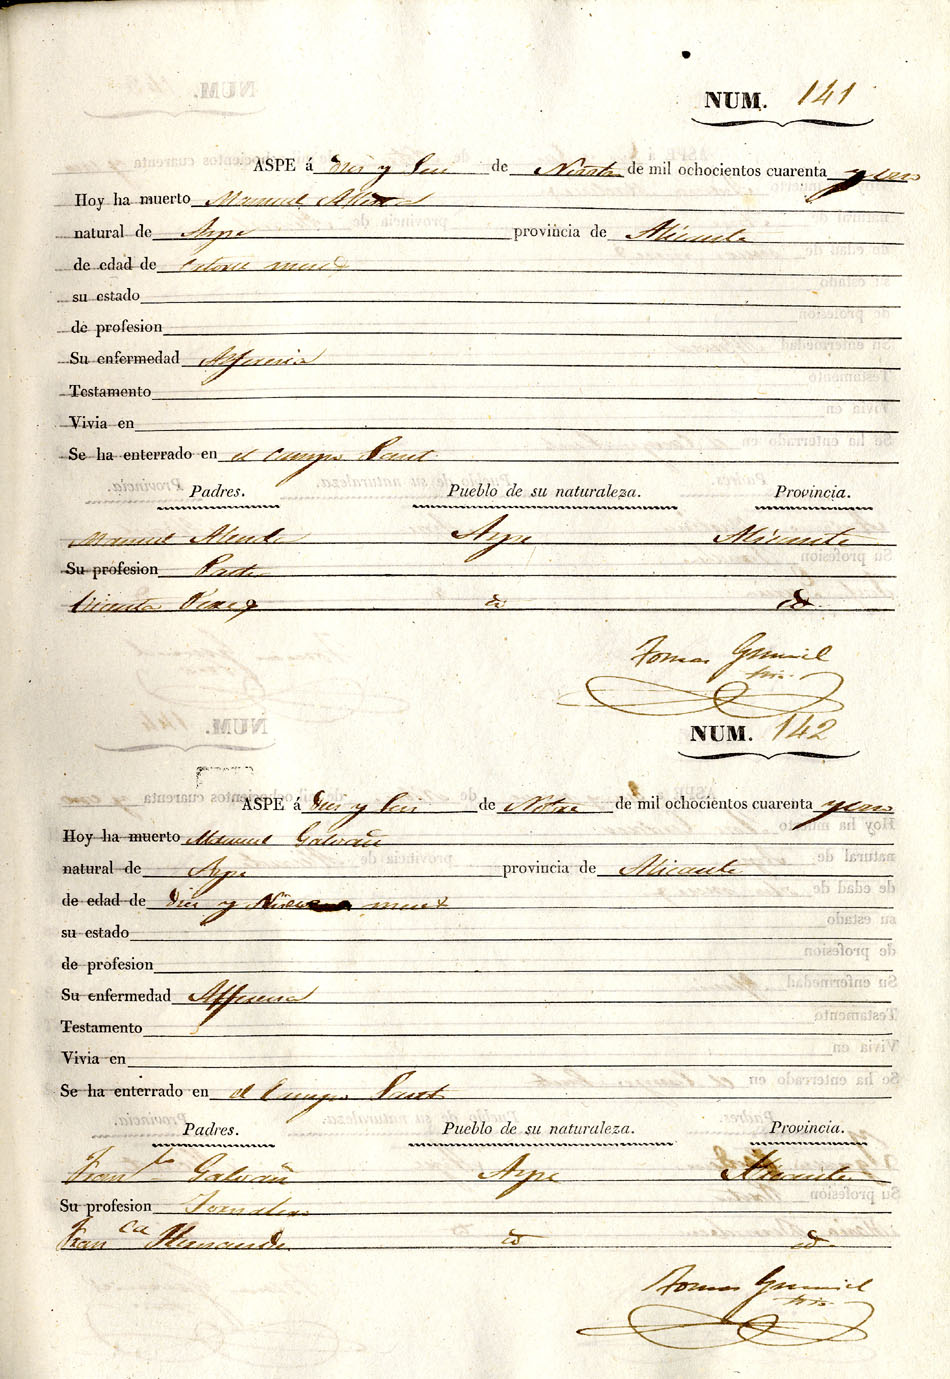 NUM. 141
ASPE á diez y seis de Nobre de mil ochocientos cuarenta y uno
Hoy ha muerto Manuel
natural de Aspe provincia de Alicante
de edad de catorce meses
su estado
de profesion
Su enfermedad Alferecia
Testamento
Vivia en
Se ha enterrado en el campo Santo
Padres. Pueblo de su naturaleza. Provincia.
Manuel Aspe Alicante
Su profesion
Vicenta Perez id id
Tomas
NUM. 142
ASPE á diez y seis de Nobre de mil ochocientos cuarenta y uno
Hoy ha muerto Manuel Galvañ
natural de Aspe provincia de Alicante
de edad de diez y Nueve meses
su estado
de profesion
Su enfermedad Alferecia
Testamento
Vivia en
Se ha enterrado en el Campo Santo
Padres. Pueblo de su naturaleza. Provincia.
Franco Galvañ Aspe Alicante
Su profesion Jornalero
Franca Hernandez id id
Tomas